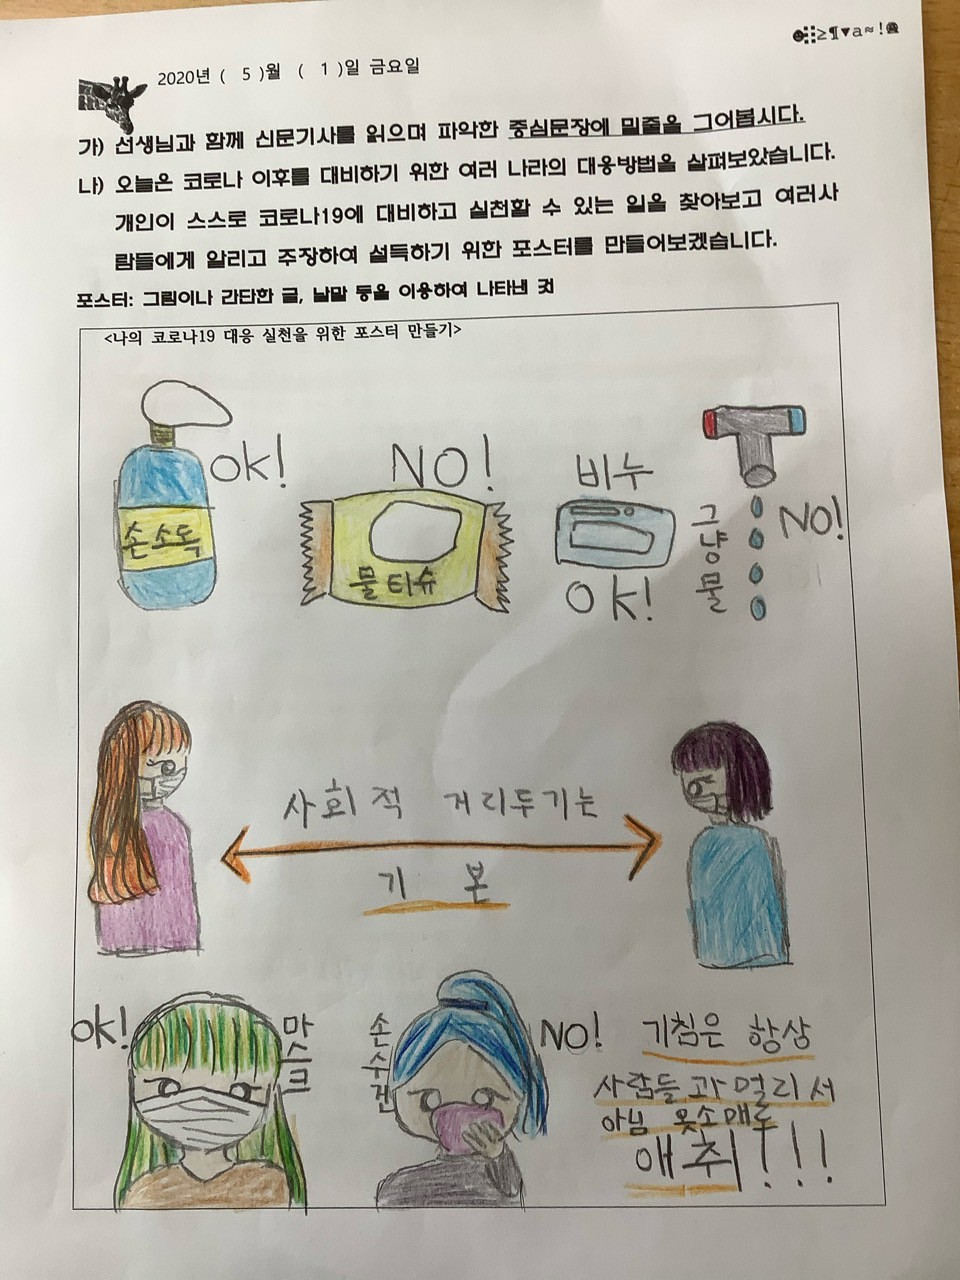 2020년 ( 5 )월 ( 1 )일 금요일
가) 선생님과 함께 신문기사를 읽으며 파악한 중심문장에 밑줄을 그어봅시다.
나) 오늘은 코로나 이후를 대비하기 위한 여러 나라의 대응방법을 살펴보았습니다.
개인이 스스로 코로나19에 대비하고 실천할 수 있는 일을 찾아보고 여러사
람들에게 알리고 주장하여 설득하기 위한 포스터를 만들어보겠습니다.
포스터: 그림이나 간단한 글, 낱말 등을 이용하여 나타낸 것
<나의 코로나19 대응 실천을 위한 포스터 만들기>
OK!
손소독
NO!
물티슈
비누
OK!
그냥물
NO!
사회적 거리두기는
기본
OK!
마스크
손수건
NO!
기침은 항상
사람들과 멀리서
아님 옷소매로
애취!!!